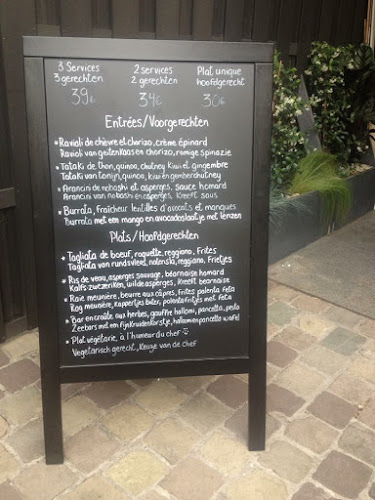 3 Services 2 services Plat unique
3 gerechten 2 gerechten hoofdgerecht
39€ 34€ 30€
Entrées/Voorgerechten
• Ravioli de chèvre et chorizo, crème épinard
Ravioli van geitenkaas en chorizo, romige spinazie
• Tataki de thon, quinoa, chutney kiwi et gingembre
Tataki van tonijn, quinoa, kiwi en gemberchutney
• Arancini de nobashi et asperges, sauce homard
Arancini van nobashi en asperges, kreeft saus
• Burrata, fraîcheur lentilles d'avocats et mangues
Burrata met een mango en avocadoslaatje met linzen
Plats/Hoofdgerechten
• Tagliata de boeuf, roquette, reggiano, Frites
Tagliata van rundsvlees, reggiano, Frietjes
• Ris de veau, asperges sauvage, béarnaise homard
Kalfs zwezeriken, wilde asperges, kreeft bearnaise
• Raie meunière, beurre aux câpres, Frites polenta feta
Rog meunière, kappertjes boter, polenta frietjes met feta
• Bar en croûte aux herbes, gauffre halloumi, pancetta, pesto
Zeebars met een fijn kruidenkorstje, halloumi pancetta wafel
• Plat végétarie, à l'humeur du chef
Vegetarisch gerecht, keuze van de chef